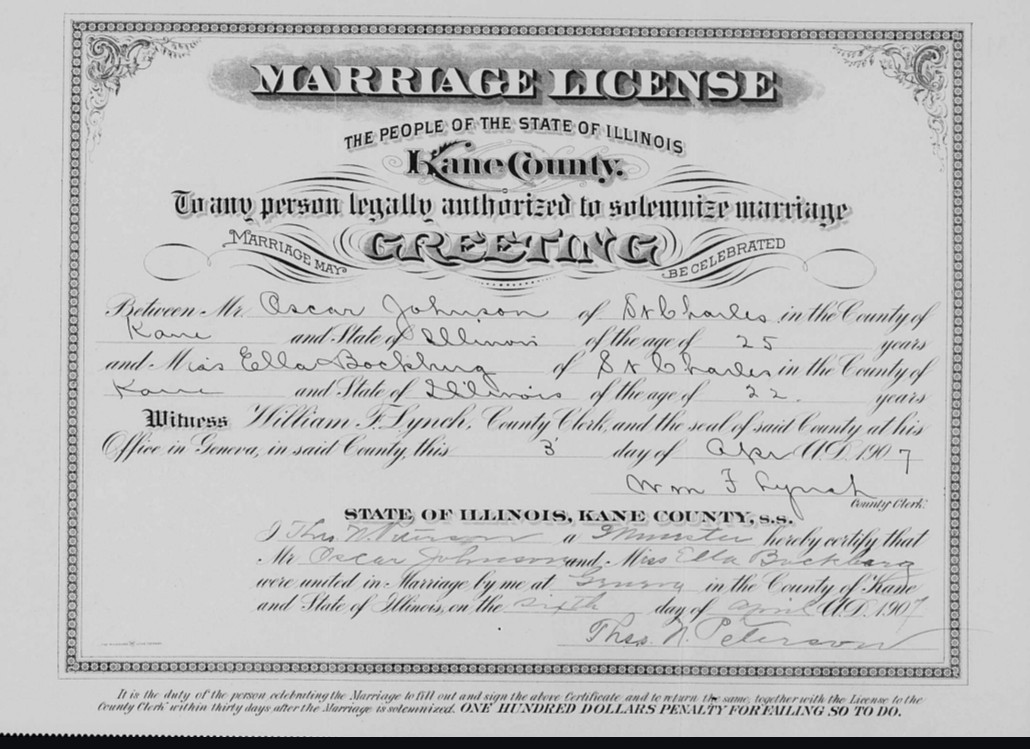 MARRIAGE LICENSE
THE PEOPLE OF THE STATE OF ILLINOIS
Kane County.
To any person legally authorized to solemnize marriage
MARRIAGE MAY GREETING BE CELEBRATED
Between Mr. Oscar Johnson of St Charles in the County of
Kane and State of Illinois of the age of 25 years
and Miss Ella Bockburg of St Charles in the County of
Kane and State of Illinois of the age of 22. years
Witness William F. Lynch, County Clerk, and the seal of said County at his
Office in Geneva, in said County, this 3 day of Apr A.D. 1907
Wm F Lynch
County Clerk.
STATE OF ILLINOIS, KANE COUNTY, S.S.
I Thos. N. Peterson a Minister hereby certify that
Mr Oscar Johnson and Miss Ella Bockberg
were united in Marriage by me at Geneva in the County of Kane
and State of Illinois, on the sixth day of April A.D. 1907
Thos. N. Peterson
It is the duty of the person celebrating the Marriage to fill out and sign the above Certificate and to return the same, together with the License to the
County Clerk within thirty days after the Marriage is solemnized. ONE HUNDRED DOLLARS PENALTY FOR FAILING SO TO DO.